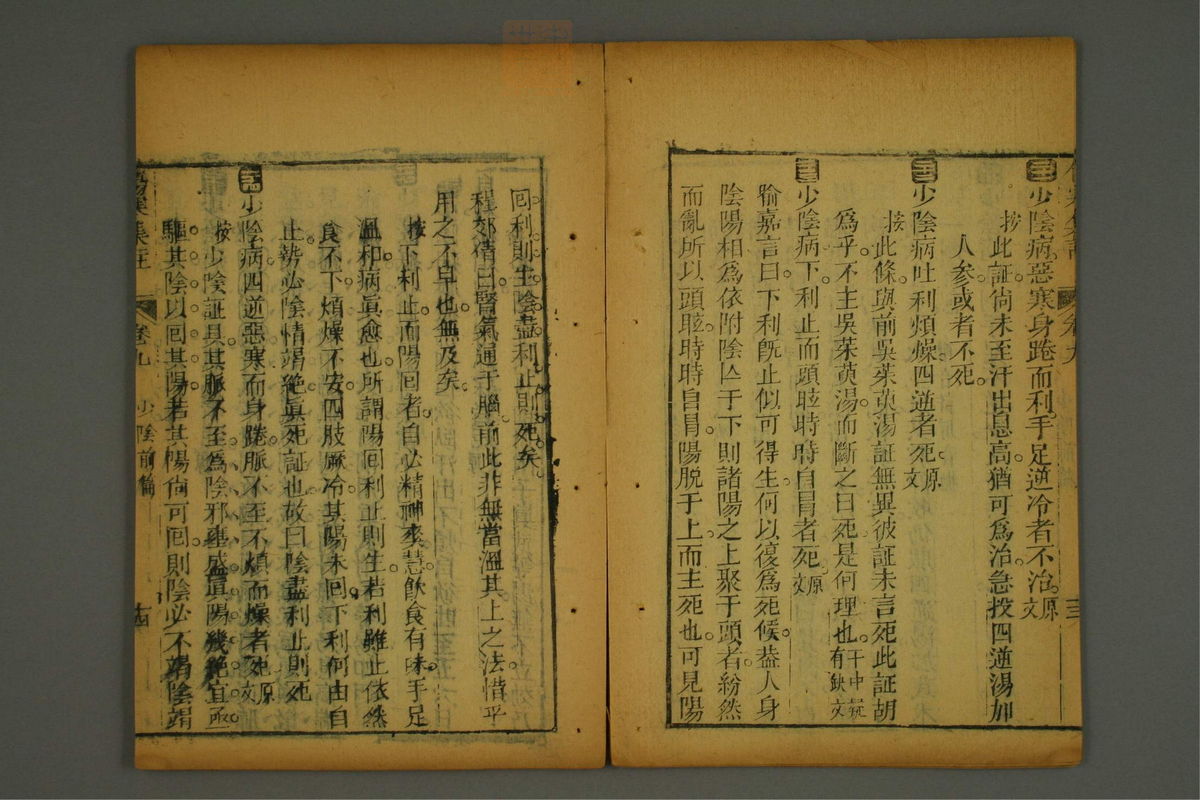 三一少陰病惡寒身踡而利手足逆冷者不治原文
按此証尚未至汗出息高猶可為治急投四逆湯加
人參或者不死
三二少陰病吐利煩燥四逆者死原文
按此條與前吳茱萸湯証無異彼証未言死此証胡
為乎不主吳茱萸湯而斷之曰死是何理也于中疑有缺文
三三少陰病下利止而頭眩時時自冒者死原文
喻嘉言曰下利旣止似可得生何以復為死候葢人身
陰陽相為依附陰亾于下則諸陽之上聚于頭者紛然
而亂所以頭眩時時自冒陽脫于上而主死也可見陽
回利則生陰盡利止則死矣
程郊倩曰腎氣通于腦前此非無當溫其上之法惜乎
用之不早也無及矣
按下利止而陽回者自必精神爽慧飲食有味手足
溫和病眞愈也所謂陽回利止則生若利雖止依然
食不下煩燥不安四肢厥冷其陽未回下利何由自
止勢必陰精竭絶眞死証也故曰陰盡利止則死
三四少陰病四逆惡寒而身踡脈不至不煩而燥者死原文
按少陰証具其脈不至為陰邪壅盛眞陽幾絶宜亟
驅其陰以回其陽若其陽尚可回則陰必不竭陰竭
傷寒集註 卷九 少陰前篇 十四